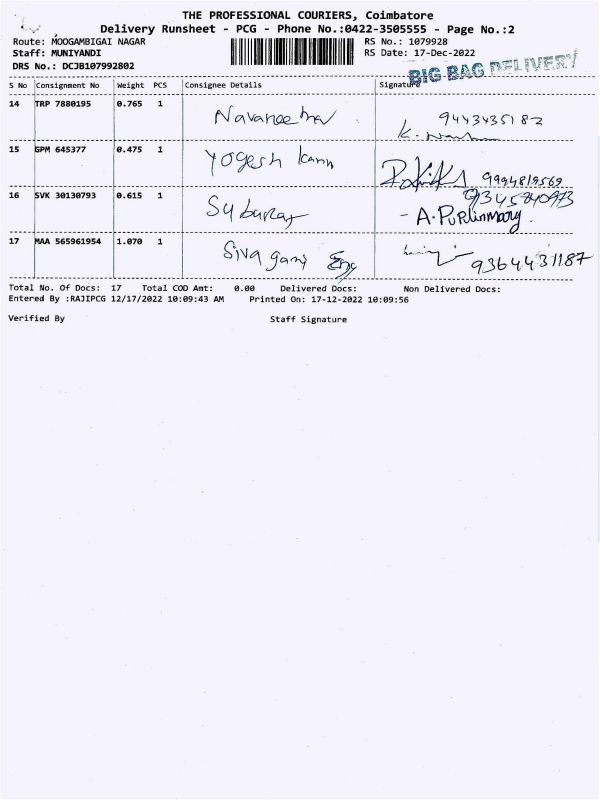 THE PROFESSIONAL COURIERS, Coimbatore
Delivery Runsheet - PCG - Phone No.:0422-3505555 - Page No.:2
Route: MOOGAMBIGAI NAGAR RS No.: 1079928
Staff: MUNIYANDI RS Date: 17-Dec-2022
DRS No.: DCJB107992802
BIG BAG DELIVERY
S No Consignment No Weight PCS Consignee Details Signature
14 TRP 7880195 0.765 1 9443435182
K.
15 SPM 645377 0.475 1 Yogesh 9994819569
16 SVK 30130793 0.615 1 9345240973
- A.
17 MAA 565961954 1.070 1 Siva gami Eng 9364431187
Total No. Of Docs: 17 Total COD Amt: 0.00 Delivered Docs: Non Delivered Docs:
Entered By :RAJIPCG 12/17/2022 10:09:43 AM Printed On: 17-12-2022 10:09:56
Verified By Staff Signature